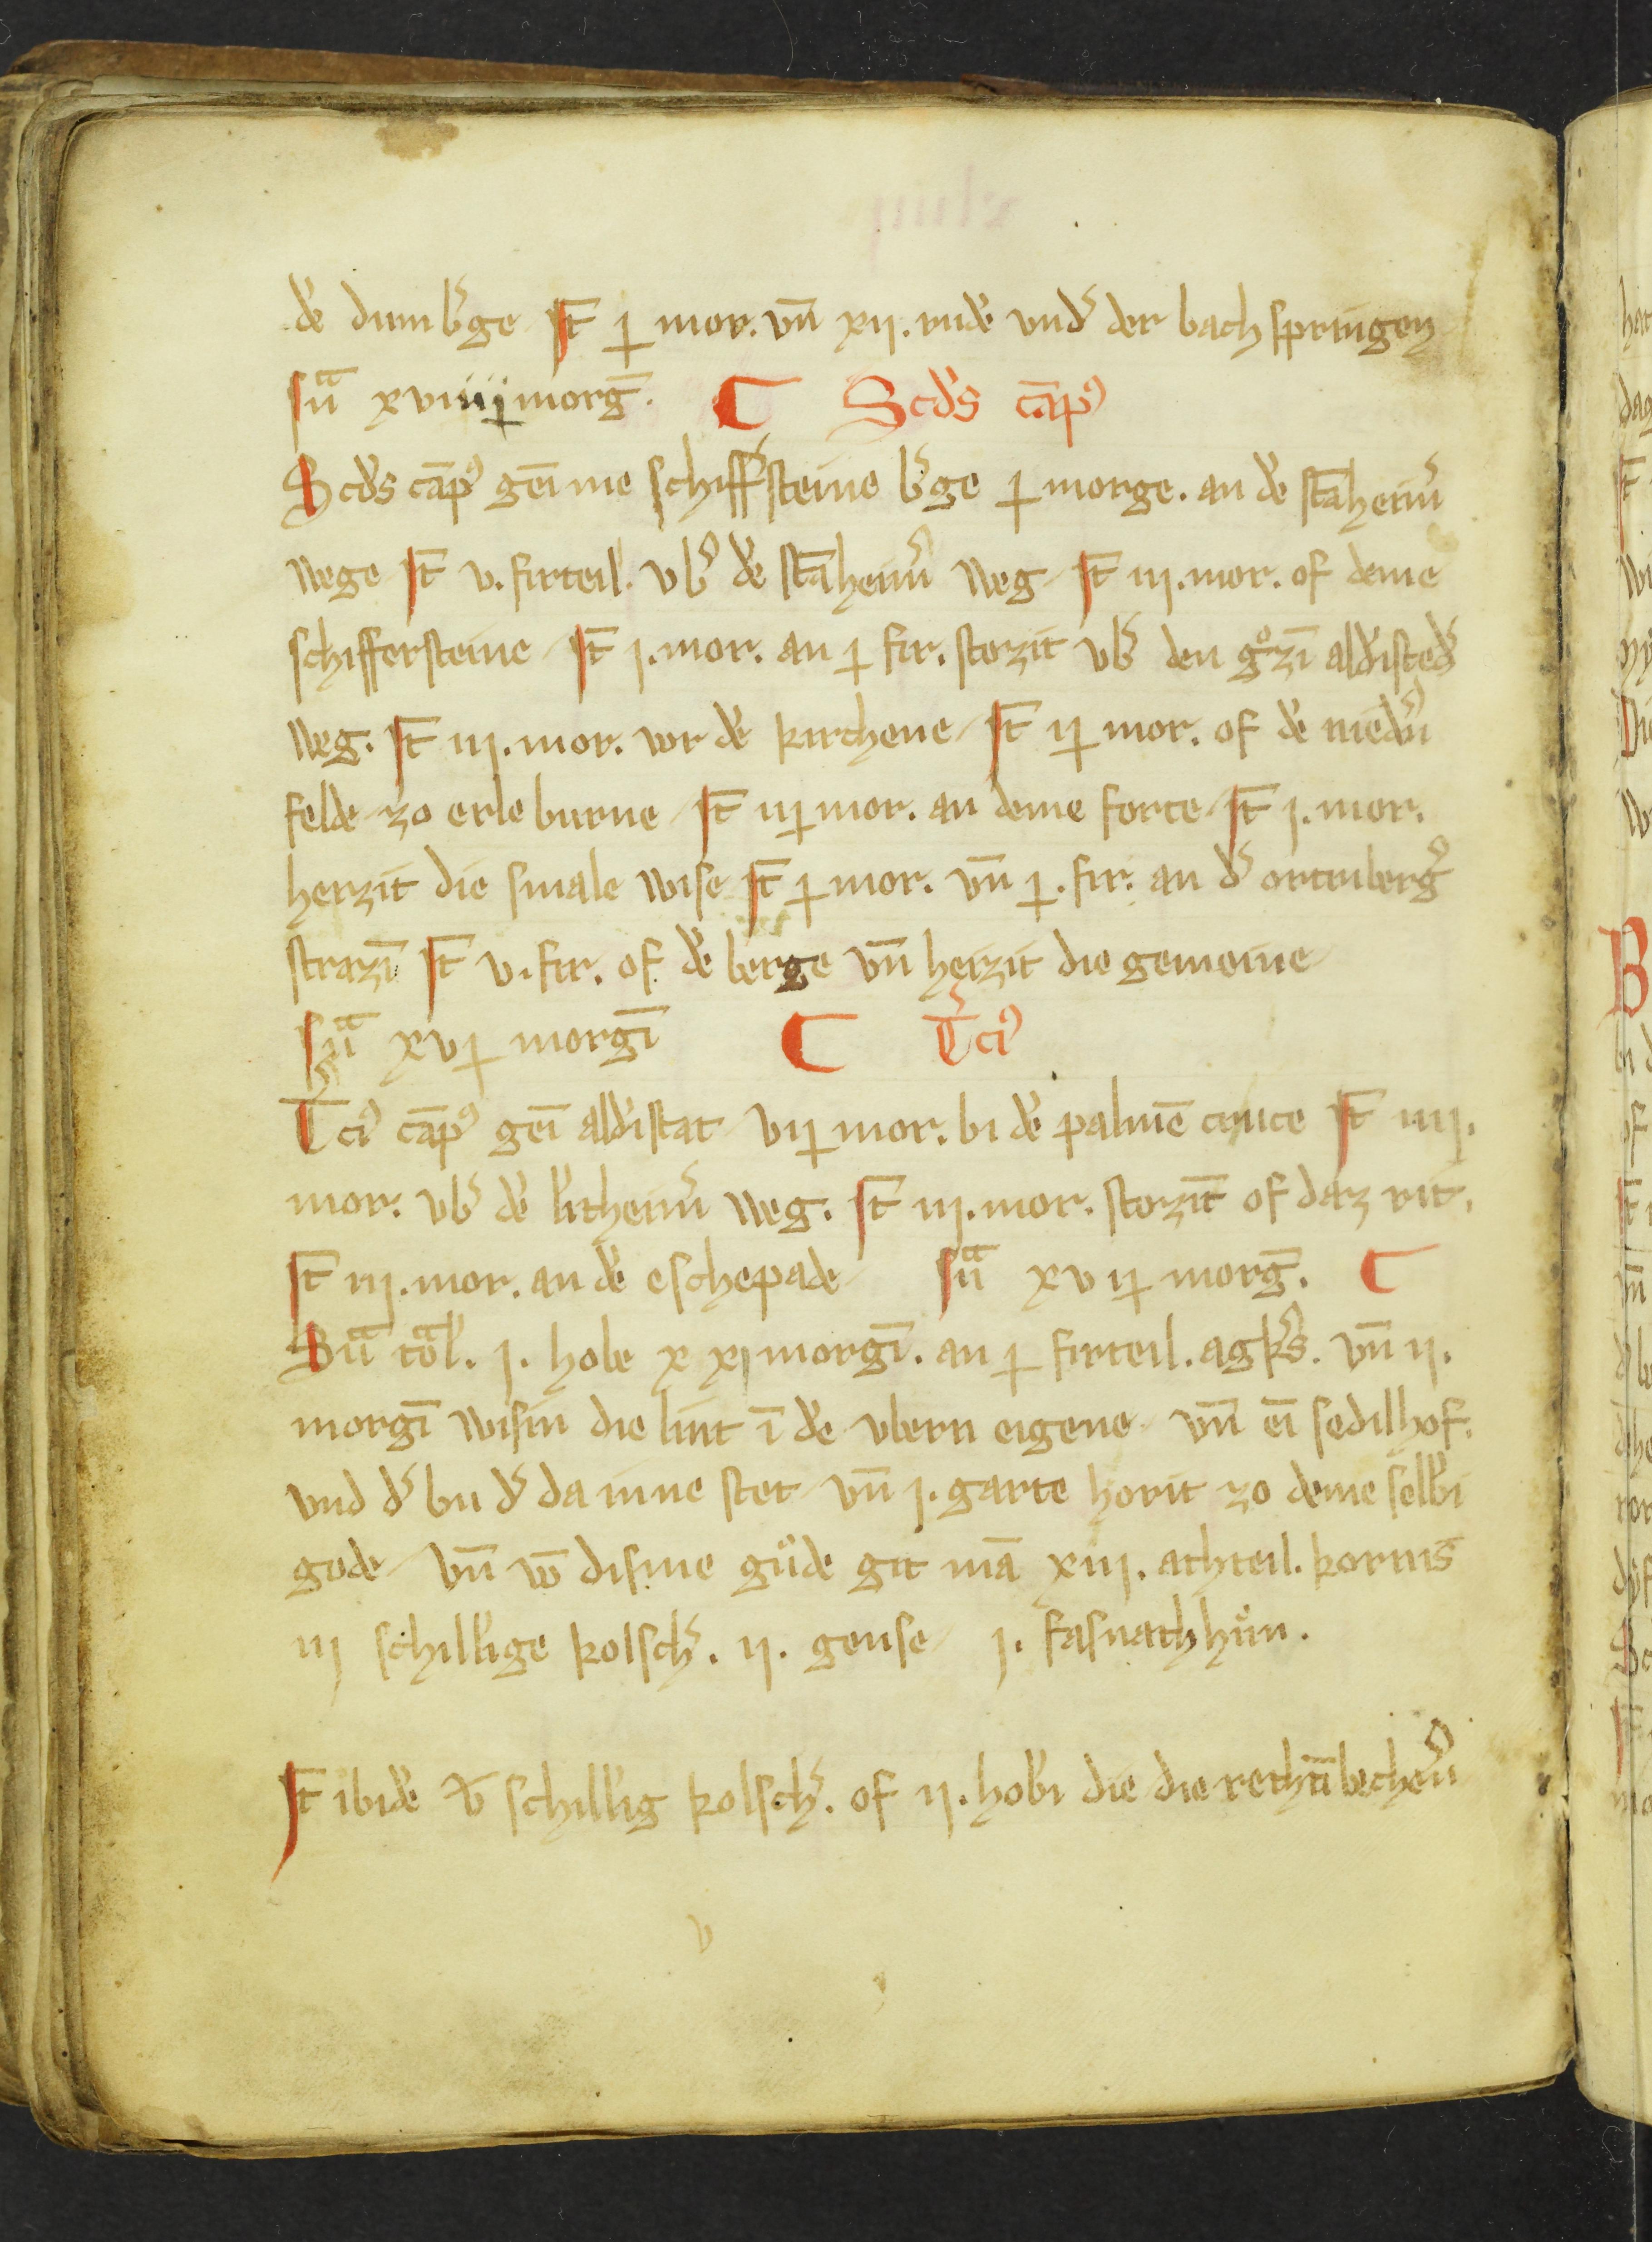 de̅ dumb͛ge it̅ ꝑ mor. vn̅ xij. rude̅ vnd͛ der bach springen
su̅ᵃ xviiiꝑ morg̅. C Scd͛s ca̅pꝰ
Scd͛s ca̅pꝰ gei̅ me schiff͛steine b͛ge ꝑ morge. an de̅ sta̅heim͛
wege it̅ v. firteil. vb͛ de̅ sta̅heim͛ weg it̅ iij. mor. of deme
schiffersteine it̅ j. mor. an ꝑ fir. storzit vb͛ den gͦzi̅ ald͛sted͛
weg. it̅ iij. mor. vor de̅ kirchene it̅ iꝑ mor. of de̅ niedn͛
felde zo erleburne it̅ iiꝑ mor. an deme force it̅ j. mor.
herzit die smale wise it̅ ꝑ mor. vn̅ ꝑ. fir. an d͛ ortenberg͛
strazi̅ it̅ v. fir. of de̅ berge vn̅ herzit die gemeine
su̅ᵃ xvꝑ morgi̅ C T͛ciꝰ
T͛ciꝰ ca̅pꝰ gei̅ ald͛stat viꝑ mor. bi de̅ palme̅ cruce it̅ iiij.
mor. vb͛ de̅ litheim͛ weg. it̅ iij. mor. storzit of daz rit.
it̅ iij. mor. an de̅ eschepade su̅ᵃ xviꝑ morg̅. C
Su̅ᵃ to̅ᵃl. j. hobe xxj morgi̅. an ꝑ firteil. agk͛s. vn̅ ij.
morgi̅ wisin die lint i̅ de̅ vbern eigene vn̅ ei̅ sedilhof.
vnd d͛ bu d͛ da inne stet vn̅ j. garte horit zo deme selbi̅
gode vn̅ vo̅ disme gůde git ma̅ xiij. achteil. kornis
iij schilli̅ge kolsch͛. ij. gense j. fasnachhůn.
it̅ ibide̅ v̅ schilli̅g kolsch͛. of ij. hobi̅ die die rethi̅becheu͛
v